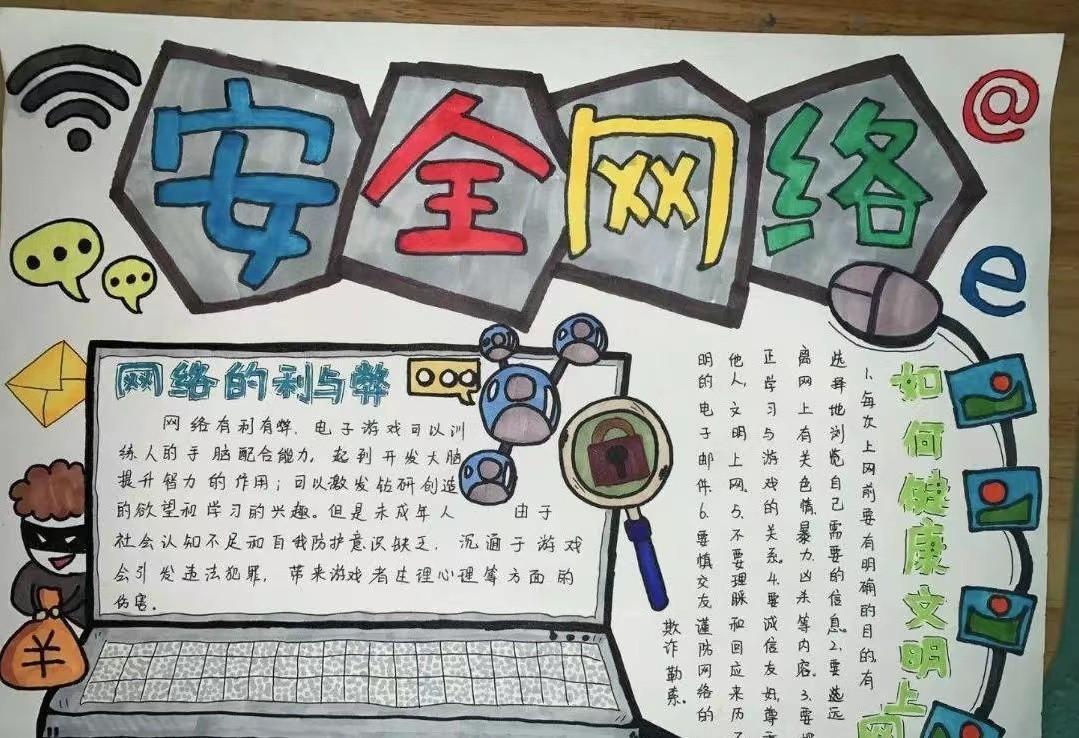 安全网络
@
e
网络的利与弊
网络有利有弊，电子游戏可以训
练人的手脑配合能力，起到开发大脑
提升智力的作用；可以激发钻研创造
的欲望和学习的兴趣。但是未成年人 由于
社会认知不足和自我防护意识缺乏，沉迷于游戏
会引发违法犯罪，带来游戏者生理心理等方面的
伤害。
¥
如何健康文明上网
1.每次上网前要有明确的目的，有
选择地浏览自己需要的信息。2.要远
离网上有关色情、暴力、凶杀等内容。3.要
正学习与游戏的关系。4.要诚信友好，尊
他人，文明上网。5.不要理睬和回应来历
明的电子邮件。6.要慎交友谨防网络的
欺诈勒索。